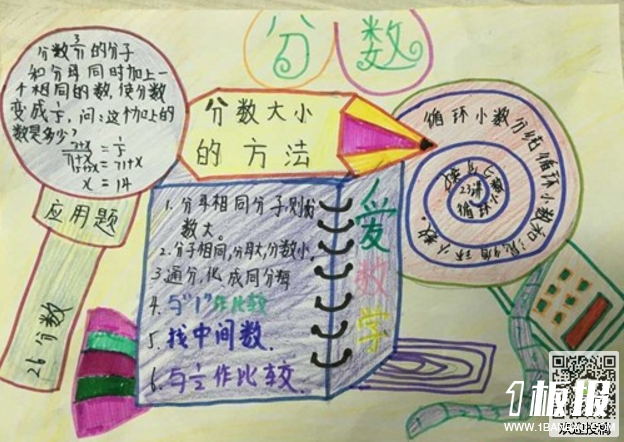 分数
分数 3/11 的分子
和分母同时加上一
个相同的数,使分数
变成 1/2,问:这个加上的
数是多少?
x = 14
应用题
26分数
分数大小
的方法
1.分母相同分子则
数大。
2.分子相同,分母大,分数小。
3通分,化成同分母
4.与“1”作比较
5.找中间数.
6.与1/2作比较.
爱数学
循环小数分纯循环小数和混循环小数.
23讲
循环小数
1板报
WWW.1BANBAO.COM
欢迎投稿